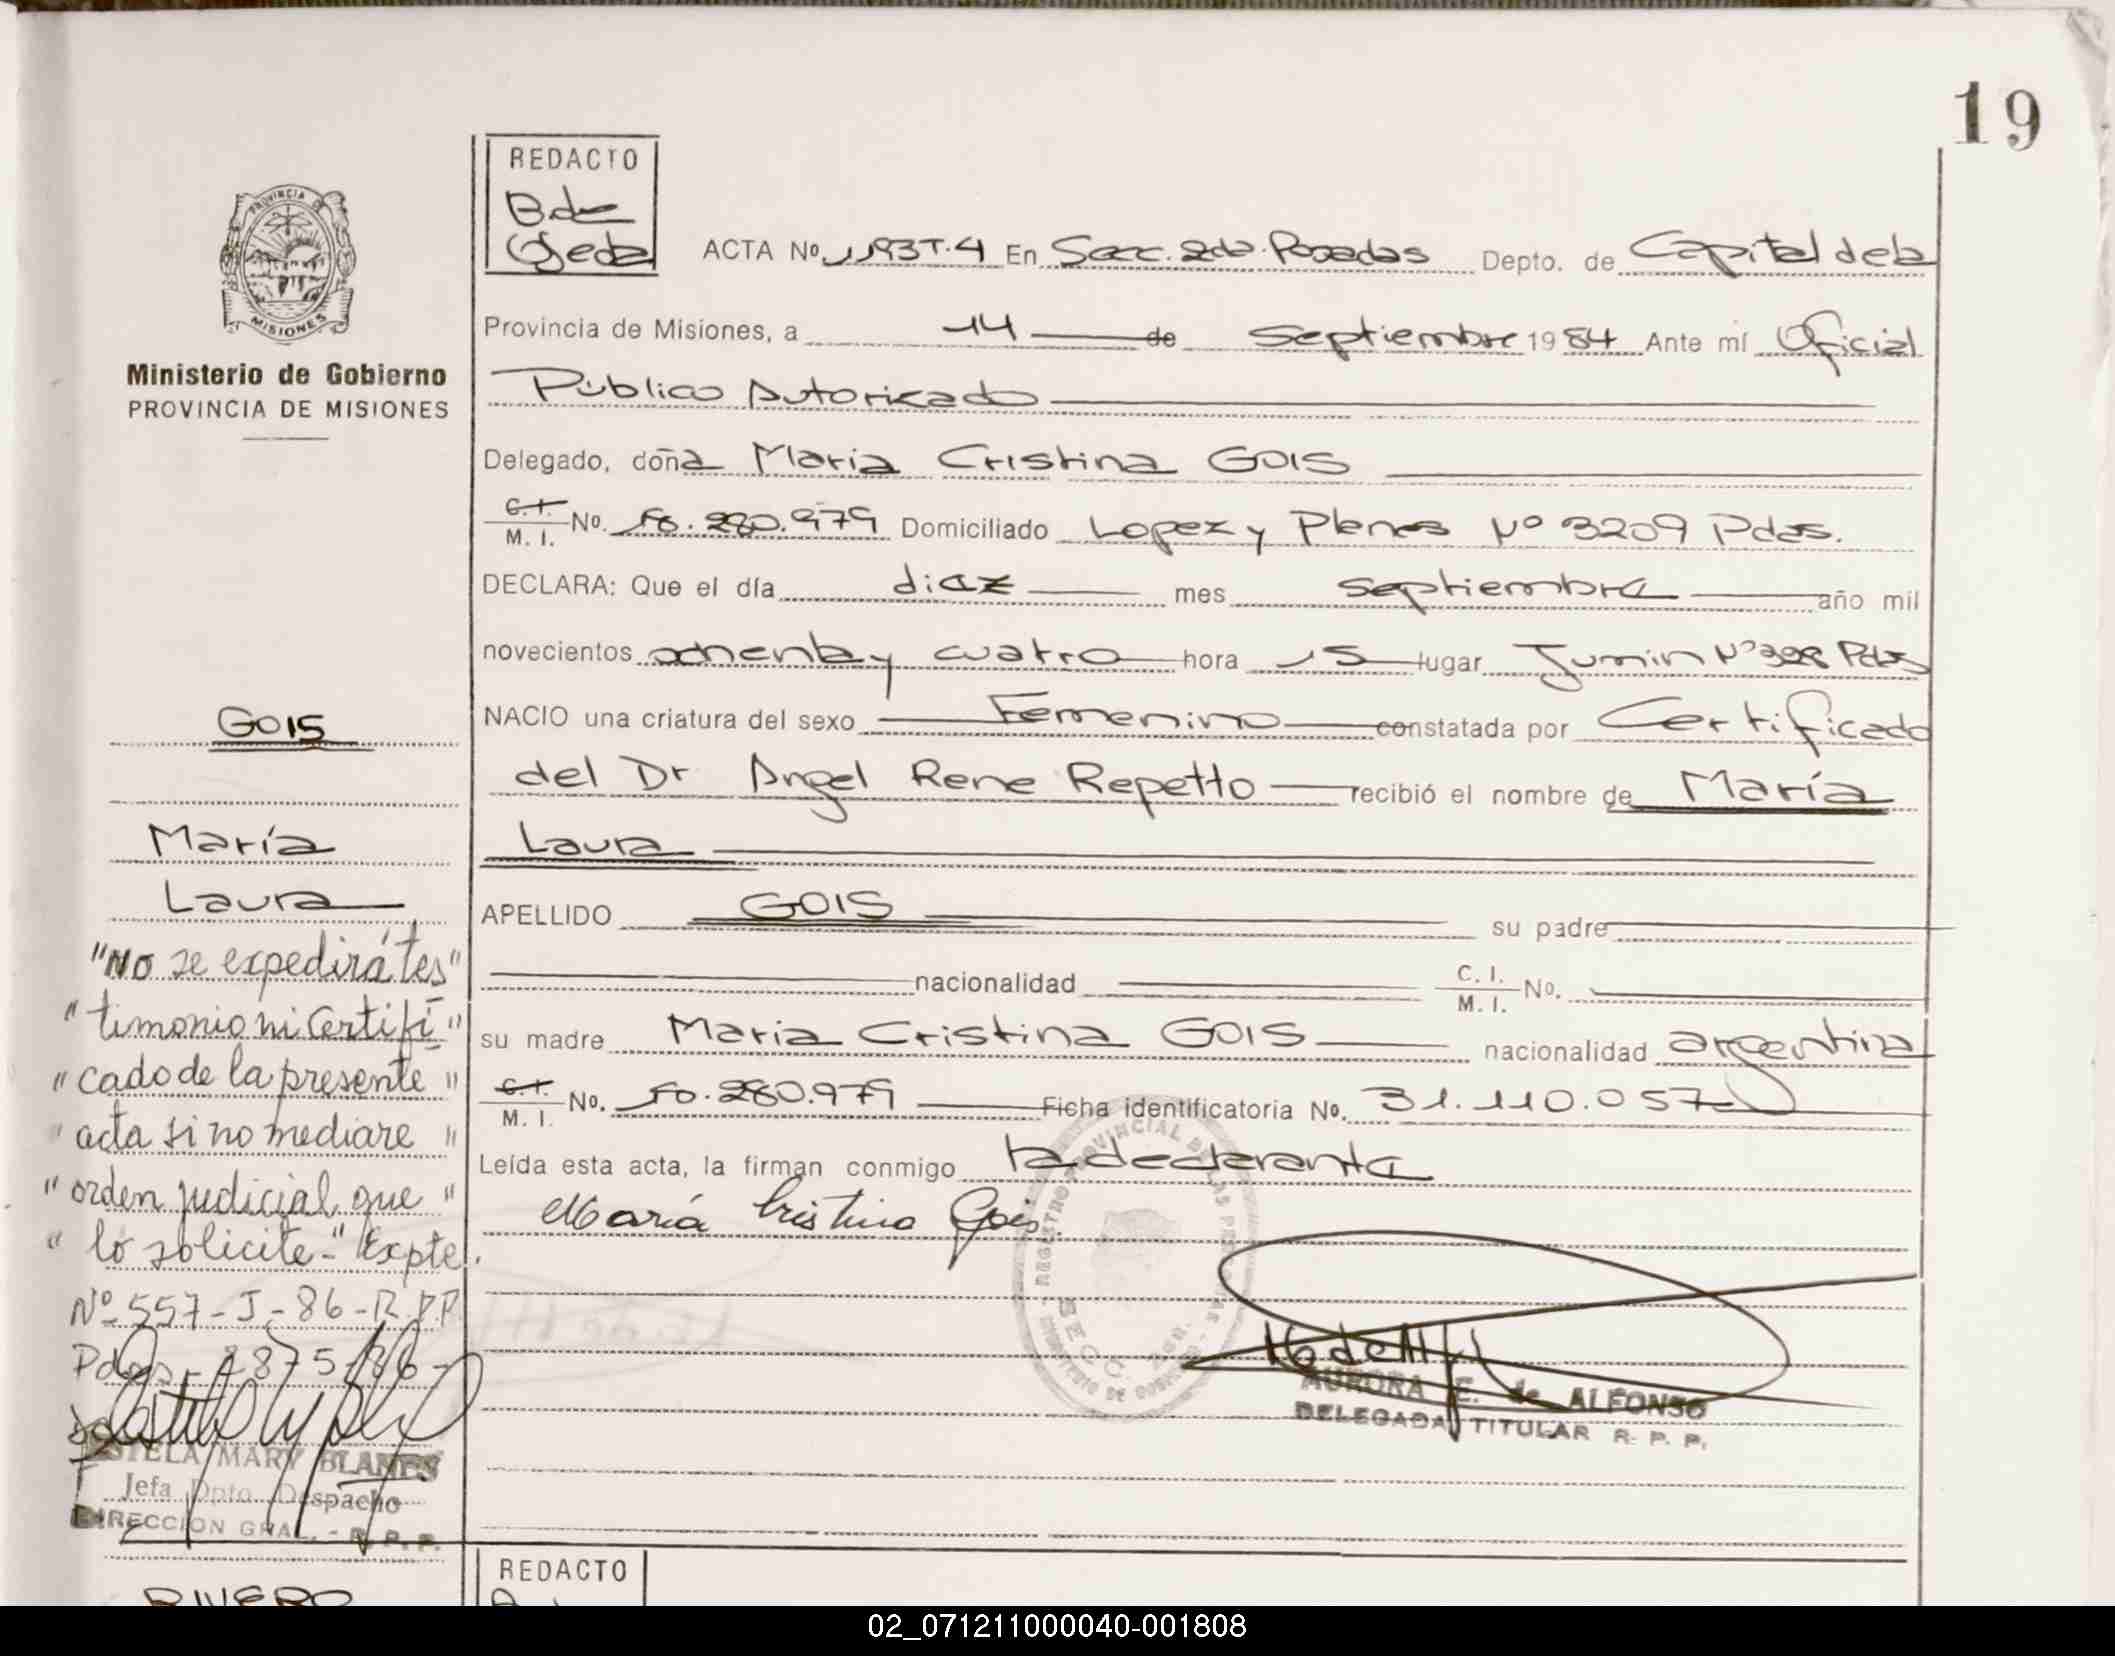 19
REDACTO
B. de
Ojeda
PROVINCIA DE
MISIONES
Ministerio de Gobierno
PROVINCIA DE MISIONES
ACTA No. 1193T.4 En Secc. 2da. Posadas Depto. de Capital de la
Provincia de Misiones, a 14 de Septiembre 1984 Ante mí Oficial
Público Autorizado
Delegado, doña Maria Cristina GOIS
C.I. M. I. No. 10.280.979 Domiciliado Lopez y Planes Nº 3209 Pdas.
DECLARA: Que el día diez mes septiembre año mil
novecientos ochenta y cuatro hora 15 lugar Junin Nº 328 Pdas
NACIO una criatura del sexo Femenino constatada por Certificado
del Dr Angel Rene Repetto recibió el nombre de María
Laura
APELLIDO GOIS su padre
nacionalidad C. I. M. I. No.
su madre Maria Cristina GOIS nacionalidad argentina
C.I. M. I. No. 10.280.979 Ficha identificatoria No. 31.110.057
Leída esta acta, la firman conmigo la declarante
María Cristina Gois
AURORA E. de ALFONSO
DELEGADA TITULAR R. P. P.
GOIS
María
Laura
"No se expedirá tes"
"timonio ni Certifi"
"cado de la presente"
"acta si no mediare"
"orden judicial que"
"lo solicite-" Expte.
Nº 557-J-86-R.P.P.
Pdas.
ESTELA MARY BLANES
Jefa Dpto. Despacho
DIRECCION GRAL. - R. P. P.
REDACTO
RIVERO
02_071211000040-001808